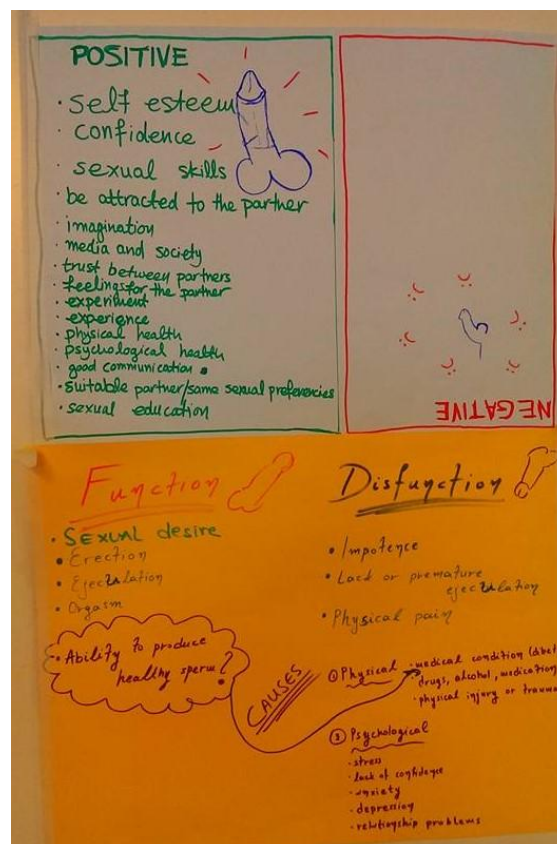 POSITIVE
• self esteem
• confidence
• sexual skills
• be attracted to the partner
• imagination
• media and society
• trust between partners
• feelings for the partner
• experiment
• experience
• physical health
• psychological health
• good communication
• suitable partner/same sexual preferencies
• sexual education
NEGATIVE
Function
• Sexual desire
• Erection
• Ejaculation
• Orgasm
• Ability to produce
healthy sperm?
Disfunction
• Impotence
• Lack or premature
ejaculation
• Physical pain
CAUSES
① Physical
• medical condition (dibet
• drugs, alcohol, medication
• physical injury or trauma
② Psychological
• stress
• lack of confidence
• anxiety
• depression
• relationship problems